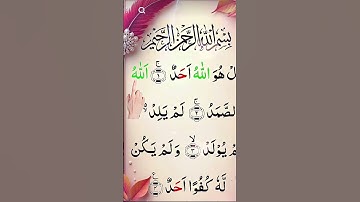 بِسْمِ اللّٰهِ الرَّحْمٰنِ الرَّحِيْمِ
لْ هُوَ اللّٰهُ اَحَدٌ ۚ﴿۱﴾ اَللّٰهُ
لصَّمَدُ ۚ﴿۲﴾ لَمْ يَلِدْ ۙ۬
مْ يُوْلَدْ ۙ﴿۳﴾ وَلَمْ يَكُنْ
لَّهٗ كُفُوًا اَحَدٌ ﴿۴﴾